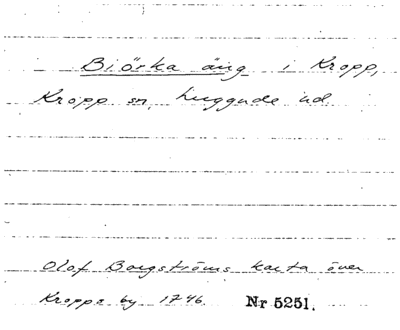 Biörka äng i Kropp,
Kropp sn, Luggude hd.
Olof Borgströms karta över
Kropps by 1746. Nr 5251.